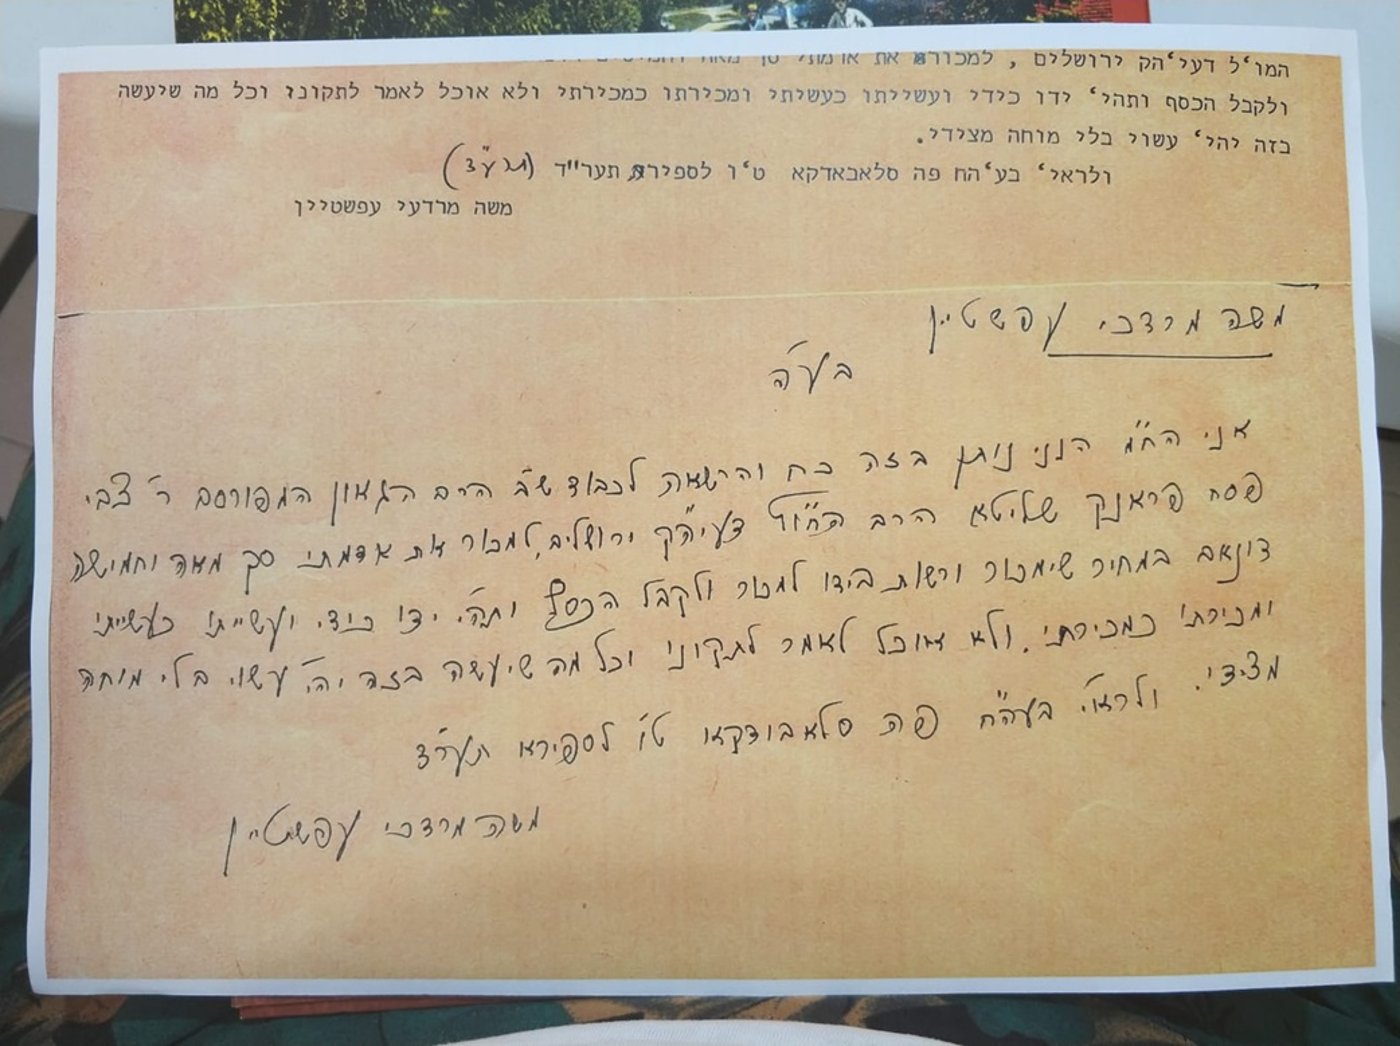 המו'ל דעי'הק ירושלים , למכור את אדמתי סך מאה
ולקבל הכסף ותהי' ידו כידי ועשייתו כעשיתי ומכירתו כמכירתי ולא אוכל לאמר לתקוני וכל מה שיעשה
בזה יהי' עשוי בלי מוחה מצידי.
ולראי' בע'הח פה סלאבאדקא ט'ו לספירא תער"ד (תרע"ד)
משה מרדעי עפשטיין
משה מרדכי עפשטיין
בע"ה
אני הח"מ הנני נותן בזה כח והרשאה לכבוד ש"ב הרב הגאון המפורסם ר' צבי
פסח פראנק שליטא הרב המו"ל דעיה"ק ירושלים, למכור את אדמתי סך מאה וחמישה
דונאם במחיר שימכור ורשות בידו למכור ולקבל הכסף ותהי' ידו כידי ועשייתו כעשייתי
ומכירתו כמכירתי. ולא אוכל לאמר לתקוני וכל מה שיעשה בזה יהי' עשוי בלי מוחה
מצידי. ולראי' בעה"ח פה סלאבודקא ט"ו לספירא תער"ד
משה מרדכי עפשטיין